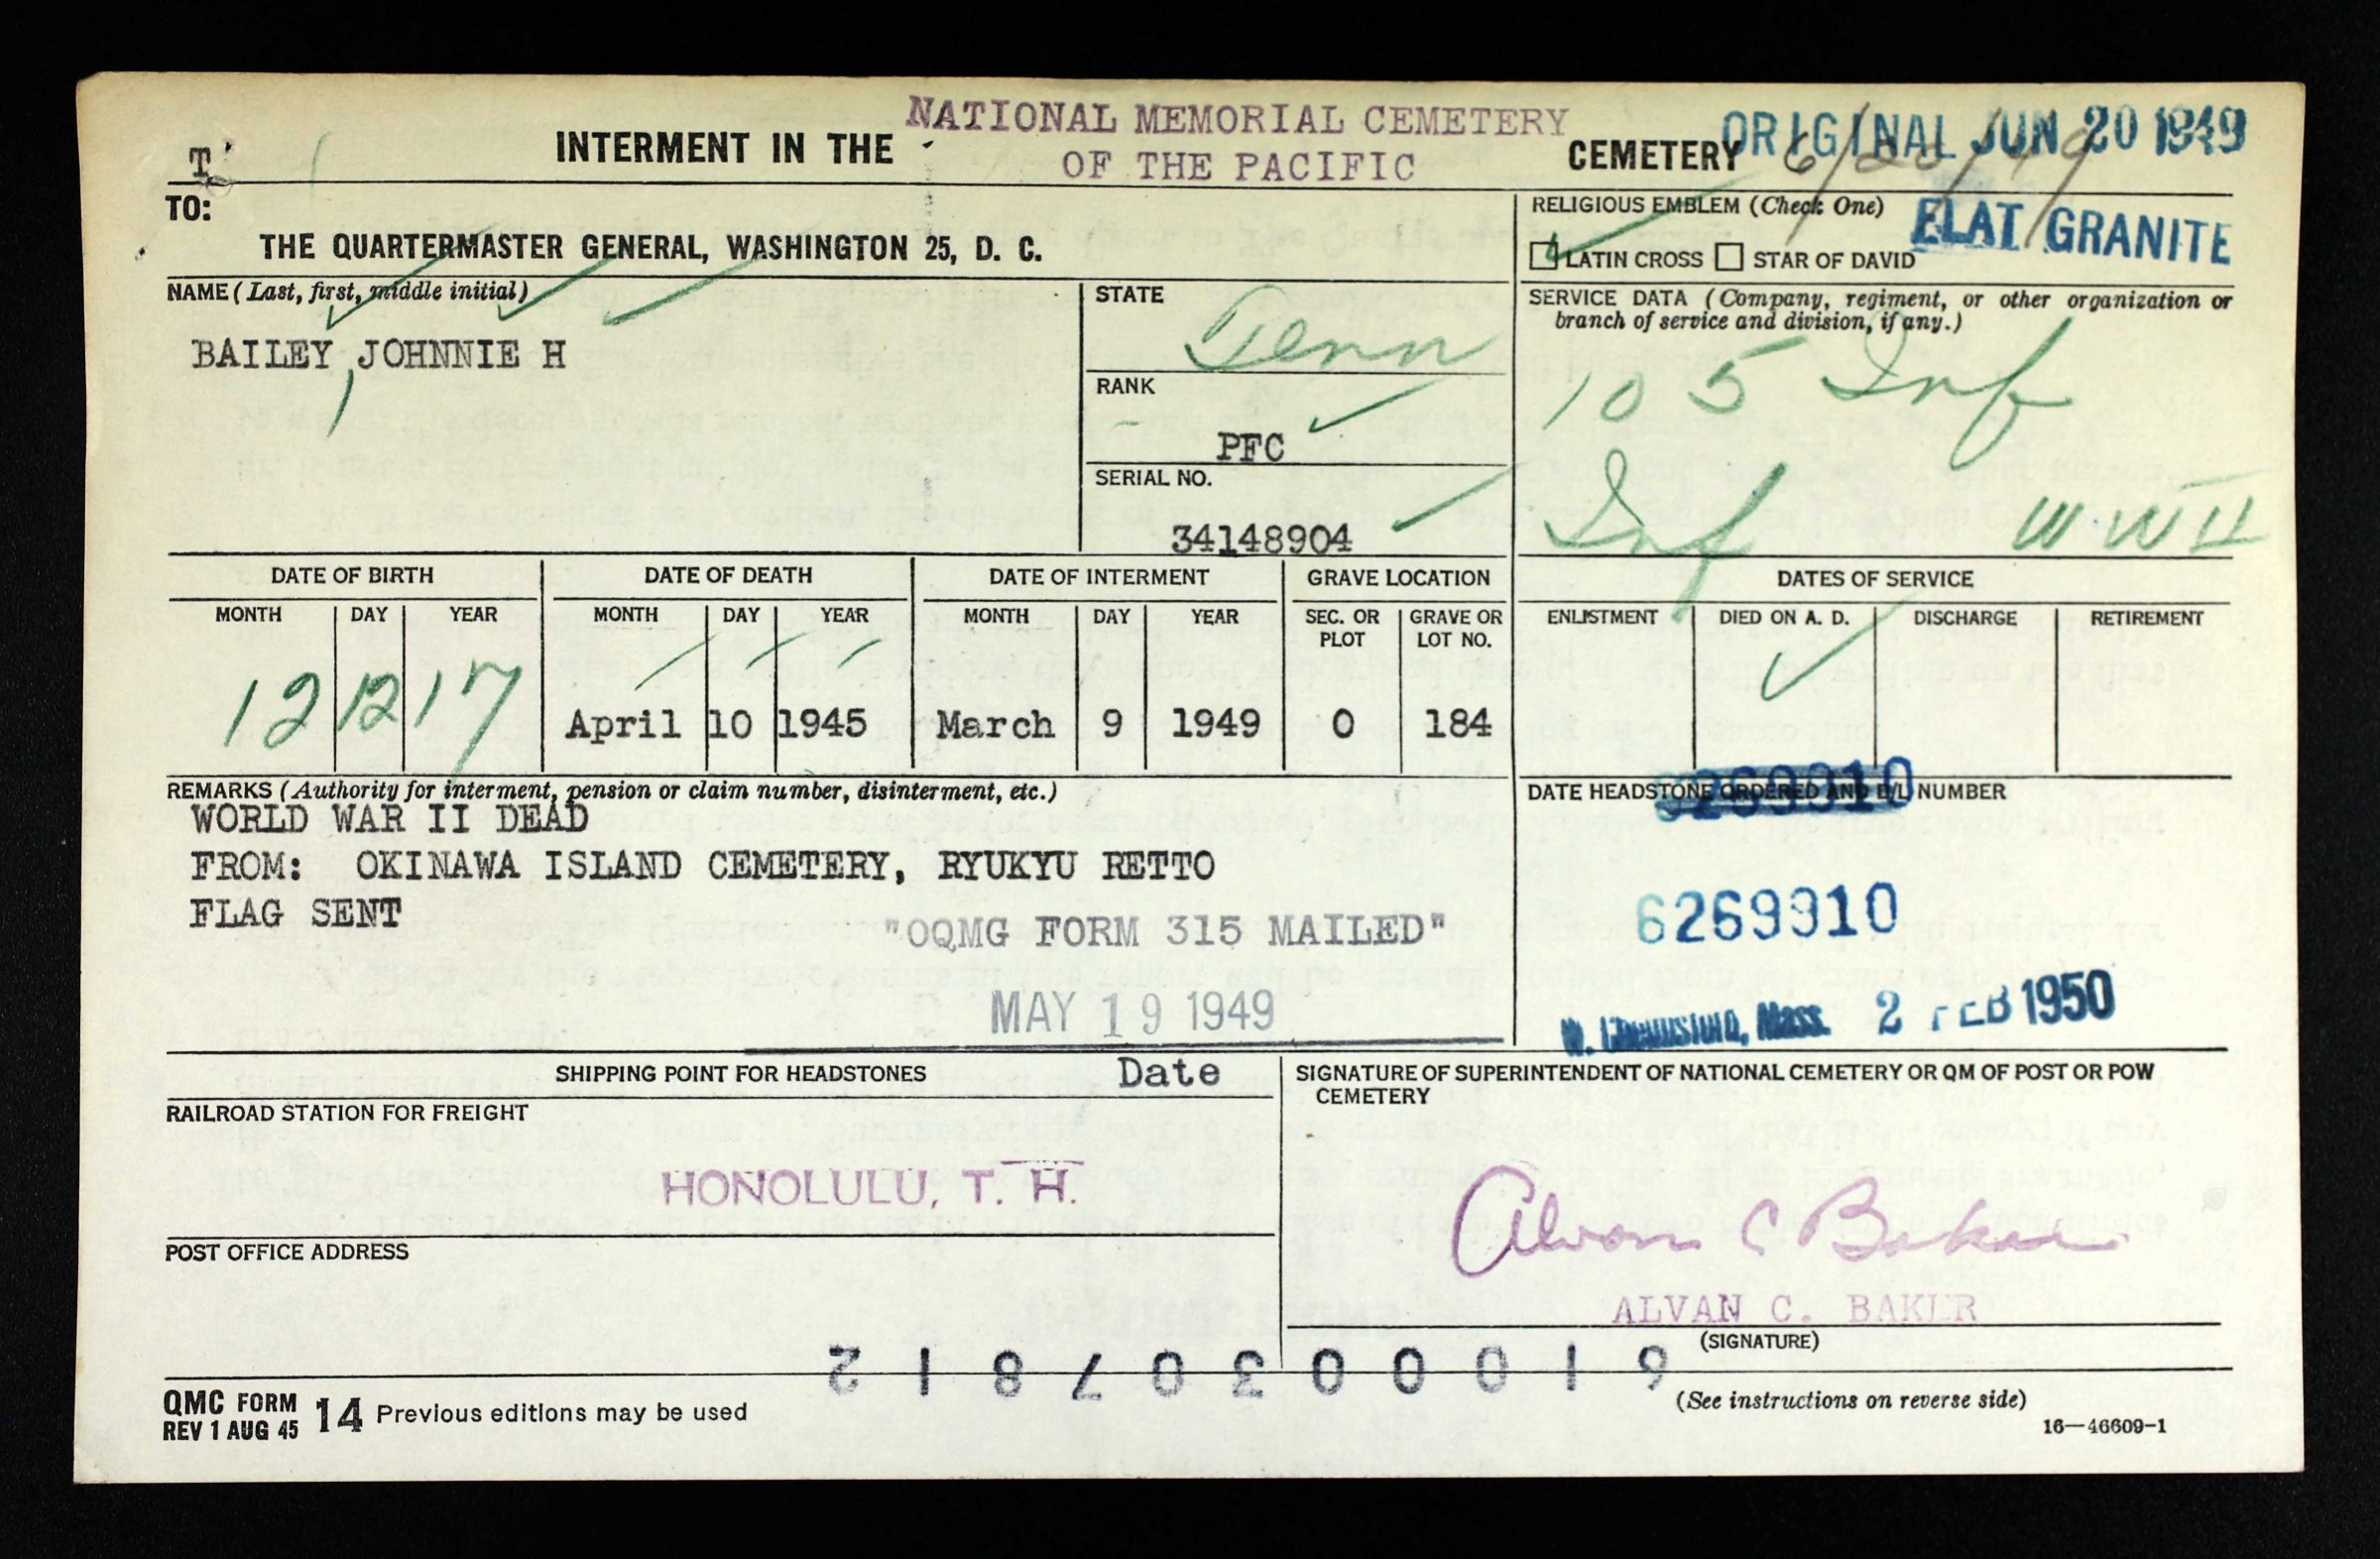 T
INTERMENT IN THE NATIONAL MEMORIAL CEMETERY OF THE PACIFIC CEMETERY
ORIGINAL JUN 20 1949
6/20/49
TO:
THE QUARTERMASTER GENERAL, WASHINGTON 25, D. C.
RELIGIOUS EMBLEM (Check One)
FLAT GRANITE
LATIN CROSS STAR OF DAVID
NAME (Last, first, middle initial)
BAILEY, JOHNNIE H
STATE
Tenn
RANK
PFC
SERIAL NO.
34148904
SERVICE DATA (Company, regiment, or other organization or
branch of service and division, if any.)
105 Inf
Inf WWII
DATE OF BIRTH DATE OF DEATH DATE OF INTERMENT GRAVE LOCATION DATES OF SERVICE
MONTH DAY YEAR MONTH DAY YEAR MONTH DAY YEAR SEC. OR PLOT GRAVE OR LOT NO. ENLISTMENT DIED ON A. D. DISCHARGE RETIREMENT
12 12 17 April 10 1945 March 9 1949 O 184
REMARKS (Authority for interment, pension or claim number, disinterment, etc.)
WORLD WAR II DEAD
FROM: OKINAWA ISLAND CEMETERY, RYUKYU RETTO
FLAG SENT
"OQMG FORM 315 MAILED"
MAY 19 1949
Date
DATE HEADSTONE ORDERED AND B/L NUMBER
6269910
6269910
W. Chelmsford, Mass. 2 FEB 1950
SHIPPING POINT FOR HEADSTONES
RAILROAD STATION FOR FREIGHT
HONOLULU, T. H.
POST OFFICE ADDRESS
SIGNATURE OF SUPERINTENDENT OF NATIONAL CEMETERY OR QM OF POST OR POW
CEMETERY
Alvan C Baker
ALVAN C. BAKER
(SIGNATURE)
61000307812
QMC FORM 14 Previous editions may be used
REV 1 AUG 45
(See instructions on reverse side)
16—46609-1